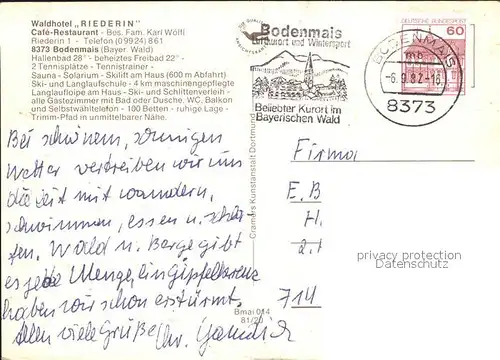 Waldhotel „RIEDERIN"
Café-Restaurant - Bes. Fam. Karl Wölfl
Riederin 1 - Telefon (09924) 861
8373 Bodenmais (Bayer. Wald)
Hallenbad 28° - beheiztes Freibad 22° -
2 Tennisplätze - Tennistrainer -
Sauna - Solarium - Skilift am Haus (600 m Abfahrt)
Ski- und Langlaufschule - 4 km maschinengepflegte
Langlaufloipe am Haus - Ski- und Schlittenverleih -
alle Gastzimmer mit Bad oder Dusche, WC, Balkon
und Selbstwähltelefon - 100 Betten - ruhige Lage -
Trimm-Pfad in unmittelbarer Nähe.
Bei schönem, sonnigen
Wetter vertreiben wir uns
die Zeit mit wandern,
schwimmen, essen u. schla-
fen. Wald u. Berge gibt
es jede Menge, ein Gipfelkreuz
haben wir schon erstürmt.
Allen viele Grüße
Bmai 014
81/20
Cramers Kunstanstalt Dortmund
Bodenmais
Luftkurort und Wintersport
Beliebter Kurort im
Bayerischen Wald
DEUTSCHE BUNDESPOST
60
BODENMAIS
mb
-6.9.82-16
8373
Firma
E. B
H.
privacy protection
Datenschutz
714